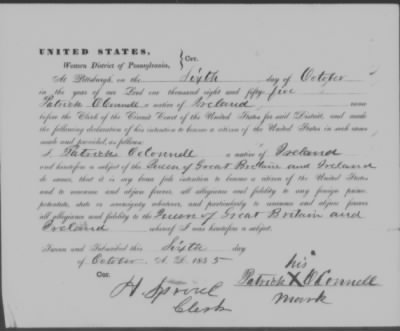 UNITED STATES,
Western District of Pennsylvania, } Ccr.
At Pittsburgh, on the Sixth day of October
in the year of our Lord one thousand eight hundred and fifty five
Patrick O'Connell a native of Ireland came
before the Clerk of the Circuit Court of the United States for said District, and made
the following declaration of his intention to become a citizen of the United States in such cases
made and provided, as follows:
I, Patrick O'Connell a native of Ireland
and heretofore a subject of the Queen of Great Britain and Ireland
do swear, that it is my bona fide intention to become a citizen of the United States
and to renounce and abjure forever, all allegiance and fidelity to any foreign prince,
potentate, state or sovereignty whatever, and particularly to renounce and abjure forever
all allegiance and fidelity to the Queen of Great Britain and
Ireland whereof I was heretofore a subject.
Sworn and Subscribed this Sixth day
of October A. D. 1855
Cor.
H. Sproul
Clerk
his
Patrick X O'Connell
mark